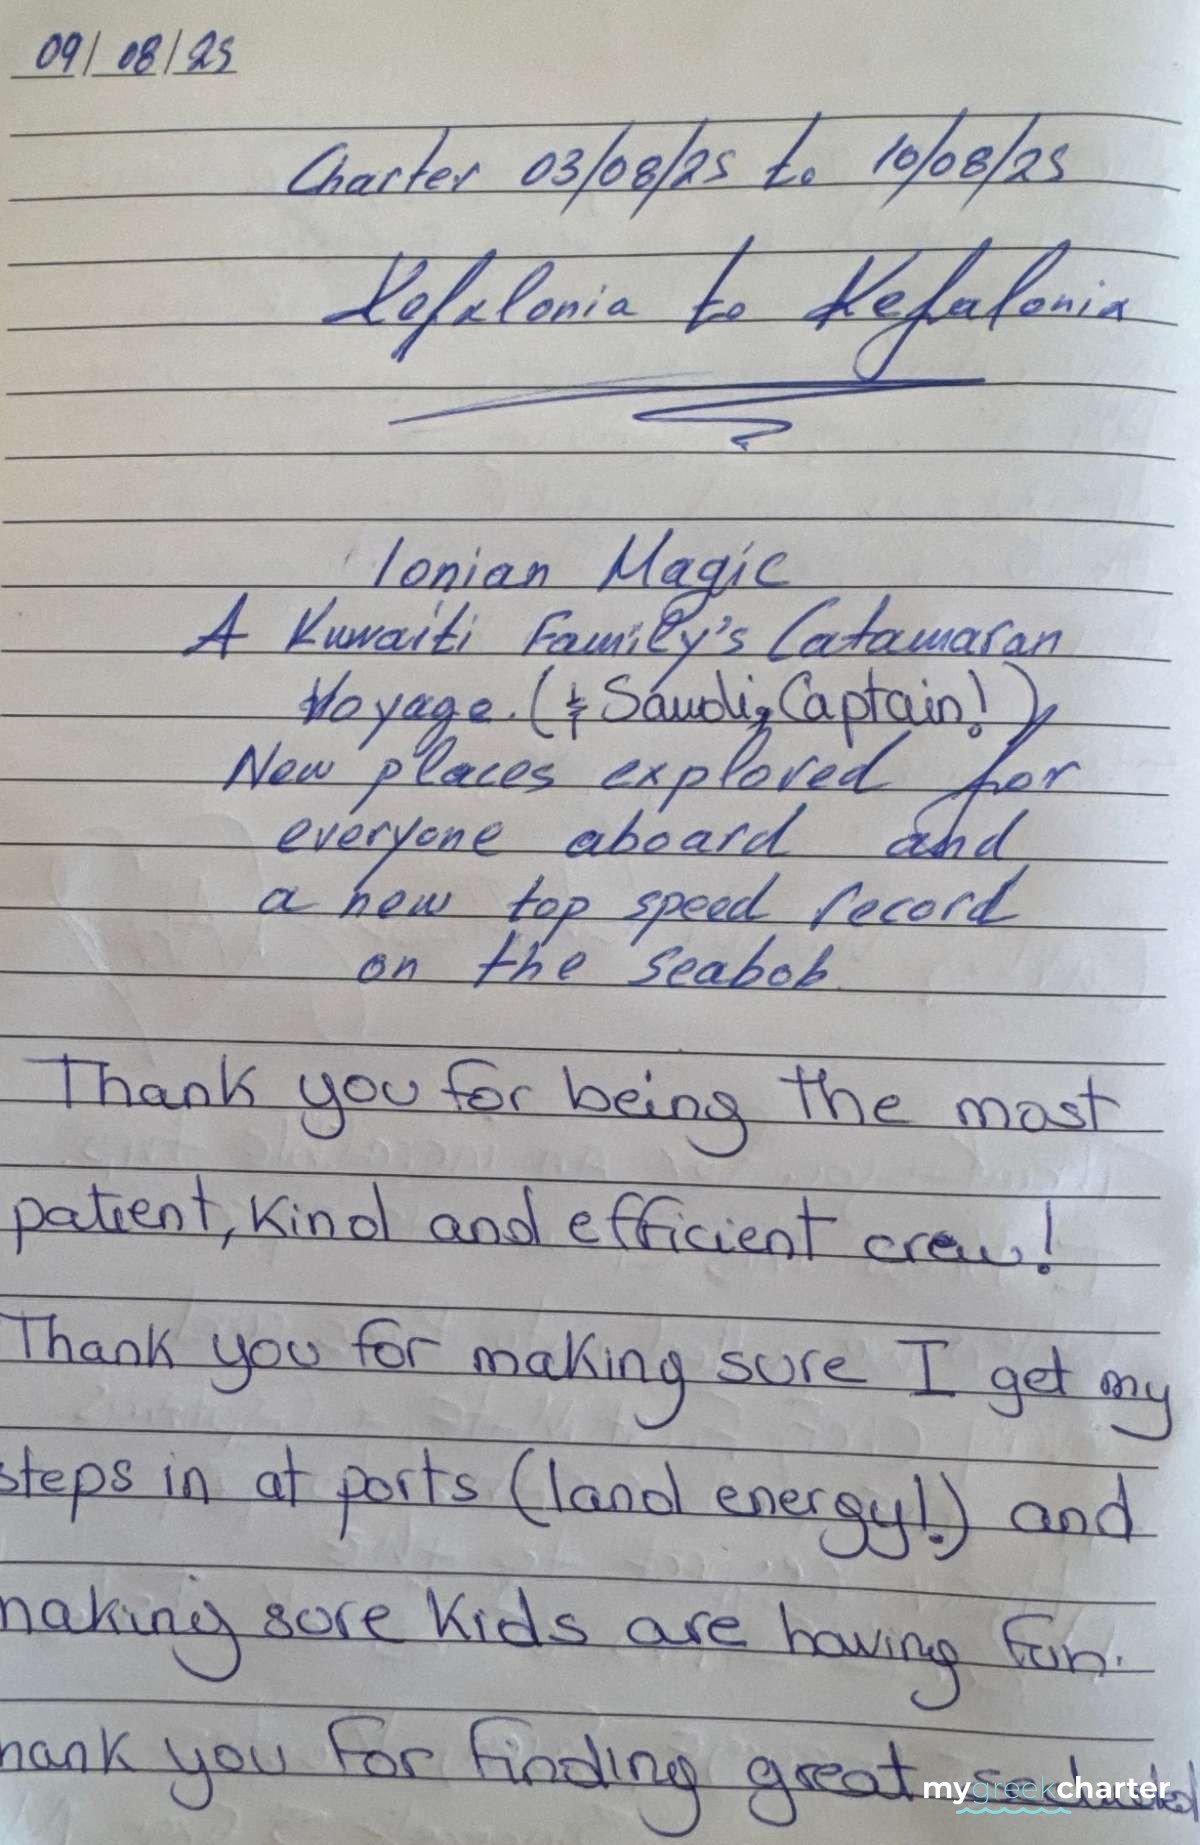 09/08/25
Charter 03/08/25 to 10/08/25
Kefalonia to Kefalonia
Ionian Magic
A Kuwaiti Family's Catamaran
Voyage. (& Saudi, Captain!)
New places explored for
everyone aboard and
a new top speed record
on the seabob
Thank you for being the most
patient, kind and efficient crew!
Thank you for making sure I get my
steps in at ports (land energy!) and
making sure kids are having fun.
hank you for finding great
mygreekcharter